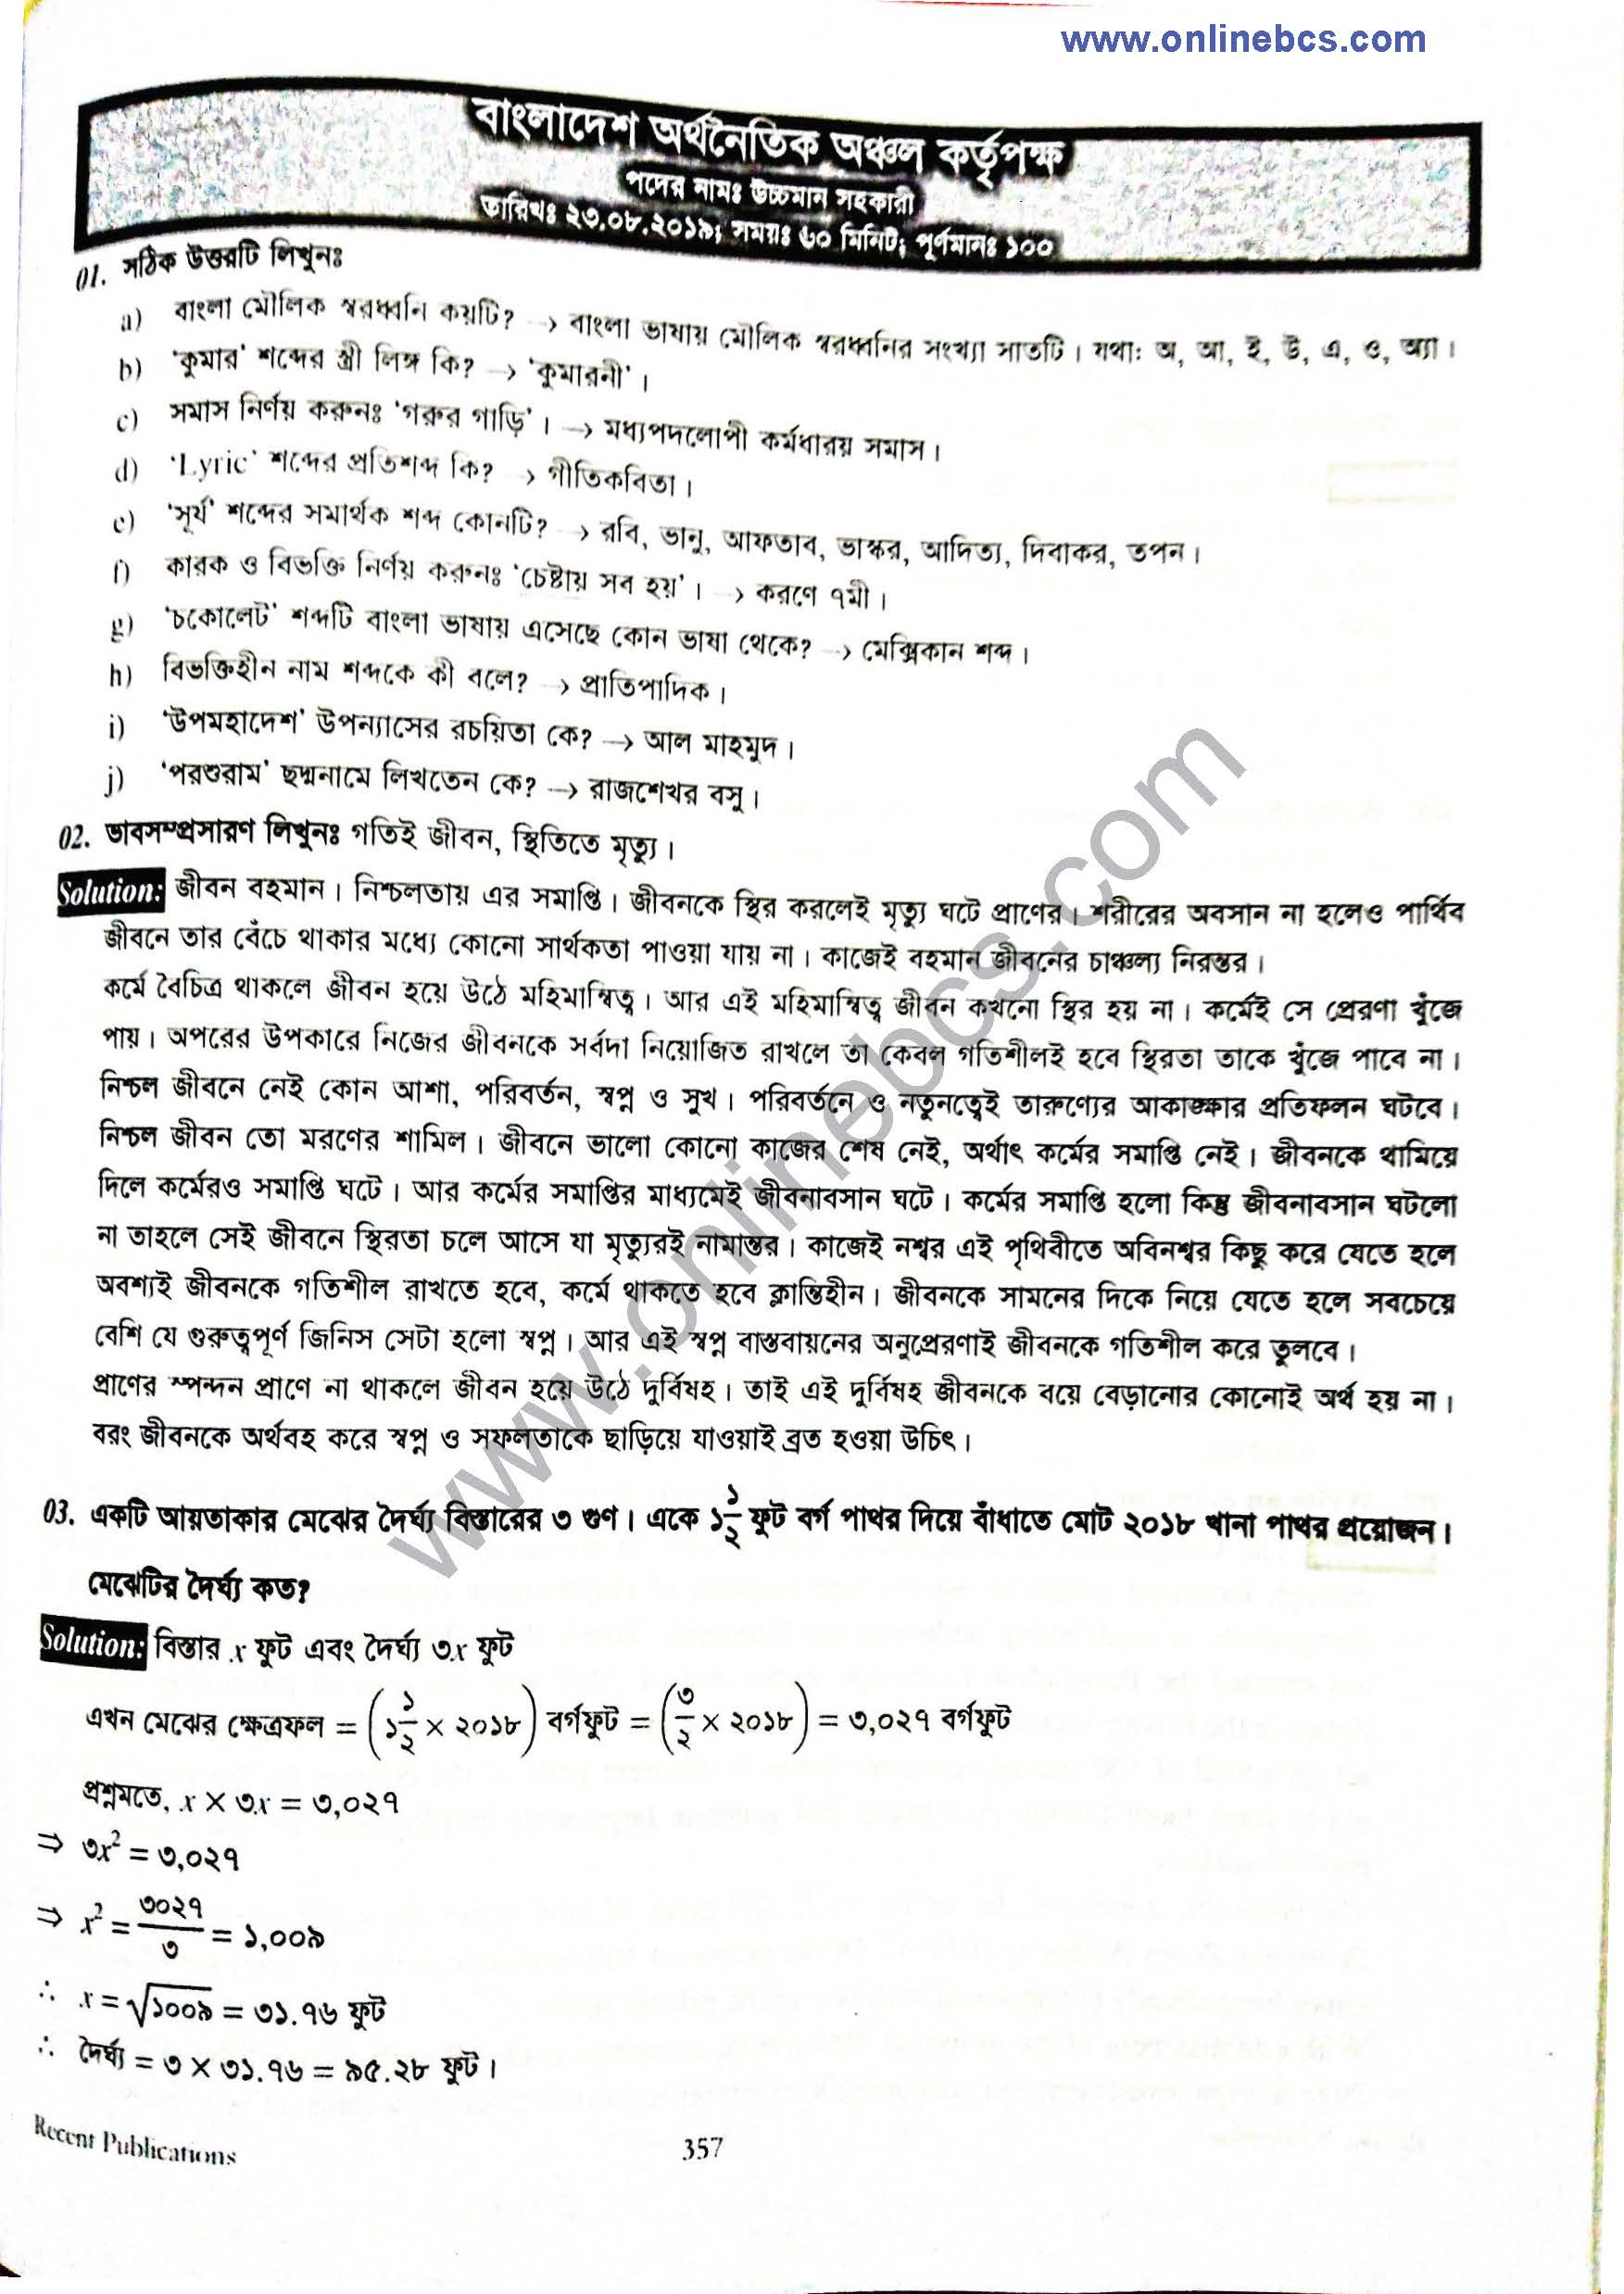 www.onlinebcs.com
বাংলাদেশ অর্থনৈতিক অঞ্চল কর্তৃপক্ষ
পদের নামঃ উচ্চমান সহকারী
তারিখঃ ২৩.০৮.২০১৯; সময়ঃ ৬০ মিনিট; পূর্ণমানঃ ১০০
01. সঠিক উত্তরটি লিখুনঃ
a) বাংলা মৌলিক স্বরধ্বনি কয়টি? → বাংলা ভাষায় মৌলিক স্বরধ্বনির সংখ্যা সাতটি। যথা: অ, আ, ই, উ, এ, ও, অ্যা।
b) 'কুমার' শব্দের স্ত্রী লিঙ্গ কি? → 'কুমারনী'।
c) সমাস নির্ণয় করুনঃ 'গরুর গাড়ি'। → মধ্যপদলোপী কর্মধারয় সমাস।
d) 'Lyric' শব্দের প্রতিশব্দ কি? → গীতিকবিতা।
e) 'সূর্য' শব্দের সমার্থক শব্দ কোনটি? → রবি, ভানু, আফতাব, ভাস্কর, আদিত্য, দিবাকর, তপন।
f) কারক ও বিভক্তি নির্ণয় করুনঃ 'চেষ্টায় সব হয়'। → করণে ৭মী।
g) 'চকোলেট' শব্দটি বাংলা ভাষায় এসেছে কোন ভাষা থেকে? → মেক্সিকান শব্দ।
h) বিভক্তিহীন নাম শব্দকে কী বলে? → প্রাতিপাদিক।
i) 'উপমহাদেশ' উপন্যাসের রচয়িতা কে? → আল মাহমুদ।
j) 'পরশুরাম' ছদ্মনামে লিখতেন কে? → রাজশেখর বসু।
02. ভাবসম্প্রসারণ লিখুনঃ গতিই জীবন, স্থিতিতে মৃত্যু।
Solution: জীবন বহমান। নিশ্চলতায় এর সমাপ্তি। জীবনকে স্থির করলেই মৃত্যু ঘটে প্রাণের। শরীরের অবসান না হলেও পার্থিব
জীবনে তার বেঁচে থাকার মধ্যে কোনো সার্থকতা পাওয়া যায় না। কাজেই বহমান জীবনের চাঞ্চল্য নিরন্তর।
কর্মে বৈচিত্র থাকলে জীবন হয়ে উঠে মহিমান্বিত্ব। আর এই মহিমান্বিত্ব জীবন কখনো স্থির হয় না। কর্মেই সে প্রেরণা খুঁজে
পায়। অপরের উপকারে নিজের জীবনকে সর্বদা নিয়োজিত রাখলে তা কেবল গতিশীলই হবে স্থিরতা তাকে খুঁজে পাবে না।
নিশ্চল জীবনে নেই কোন আশা, পরিবর্তন, স্বপ্ন ও সুখ। পরিবর্তনে ও নতুনত্বেই তারুণ্যের আকাঙ্ক্ষার প্রতিফলন ঘটবে।
নিশ্চল জীবন তো মরণের শামিল। জীবনে ভালো কোনো কাজের শেষ নেই, অর্থাৎ কর্মের সমাপ্তি নেই। জীবনকে থামিয়ে
দিলে কর্মেরও সমাপ্তি ঘটে। আর কর্মের সমাপ্তির মাধ্যমেই জীবনাবসান ঘটে। কর্মের সমাপ্তি হলো কিন্তু জীবনাবসান ঘটলো
না তাহলে সেই জীবনে স্থিরতা চলে আসে যা মৃত্যুরই নামান্তর। কাজেই নশ্বর এই পৃথিবীতে অবিনশ্বর কিছু করে যেতে হলে
অবশ্যই জীবনকে গতিশীল রাখতে হবে, কর্মে থাকতে হবে ক্লান্তিহীন। জীবনকে সামনের দিকে নিয়ে যেতে হলে সবচেয়ে
বেশি যে গুরুত্বপূর্ণ জিনিস সেটা হলো স্বপ্ন। আর এই স্বপ্ন বাস্তবায়নের অনুপ্রেরণাই জীবনকে গতিশীল করে তুলবে।
প্রাণের স্পন্দন প্রাণে না থাকলে জীবন হয়ে উঠে দুর্বিষহ। তাই এই দুর্বিষহ জীবনকে বয়ে বেড়ানোর কোনোই অর্থ হয় না।
বরং জীবনকে অর্থবহ করে স্বপ্ন ও সফলতাকে ছাড়িয়ে যাওয়াই ব্রত হওয়া উচিৎ।
03. একটি আয়তাকার মেঝের দৈর্ঘ্য বিস্তারের ৩ গুণ। একে ১ ১/২ ফুট বর্গ পাথর দিয়ে বাঁধাতে মোট ২০১৮ খানা পাথর প্রয়োজন।
মেঝেটির দৈর্ঘ্য কত?
Solution: বিস্তার x ফুট এবং দৈর্ঘ্য ৩x ফুট
এখন মেঝের ক্ষেত্রফল = (১ ১/২ × ২০১৮) বর্গফুট = (৩/২ × ২০১৮) = ৩,০২৭ বর্গফুট
প্রশ্নমতে, x × ৩x = ৩,০২৭
⇒ ৩x² = ৩,০২৭
⇒ x² = ৩০২৭/৩ = ১,০০৯
∴ x = √১০০৯ = ৩১.৭৬ ফুট
∴ দৈর্ঘ্য = ৩ × ৩১.৭৬ = ৯৫.২৮ ফুট।
Recent Publications
357
www.onlinebcs.com